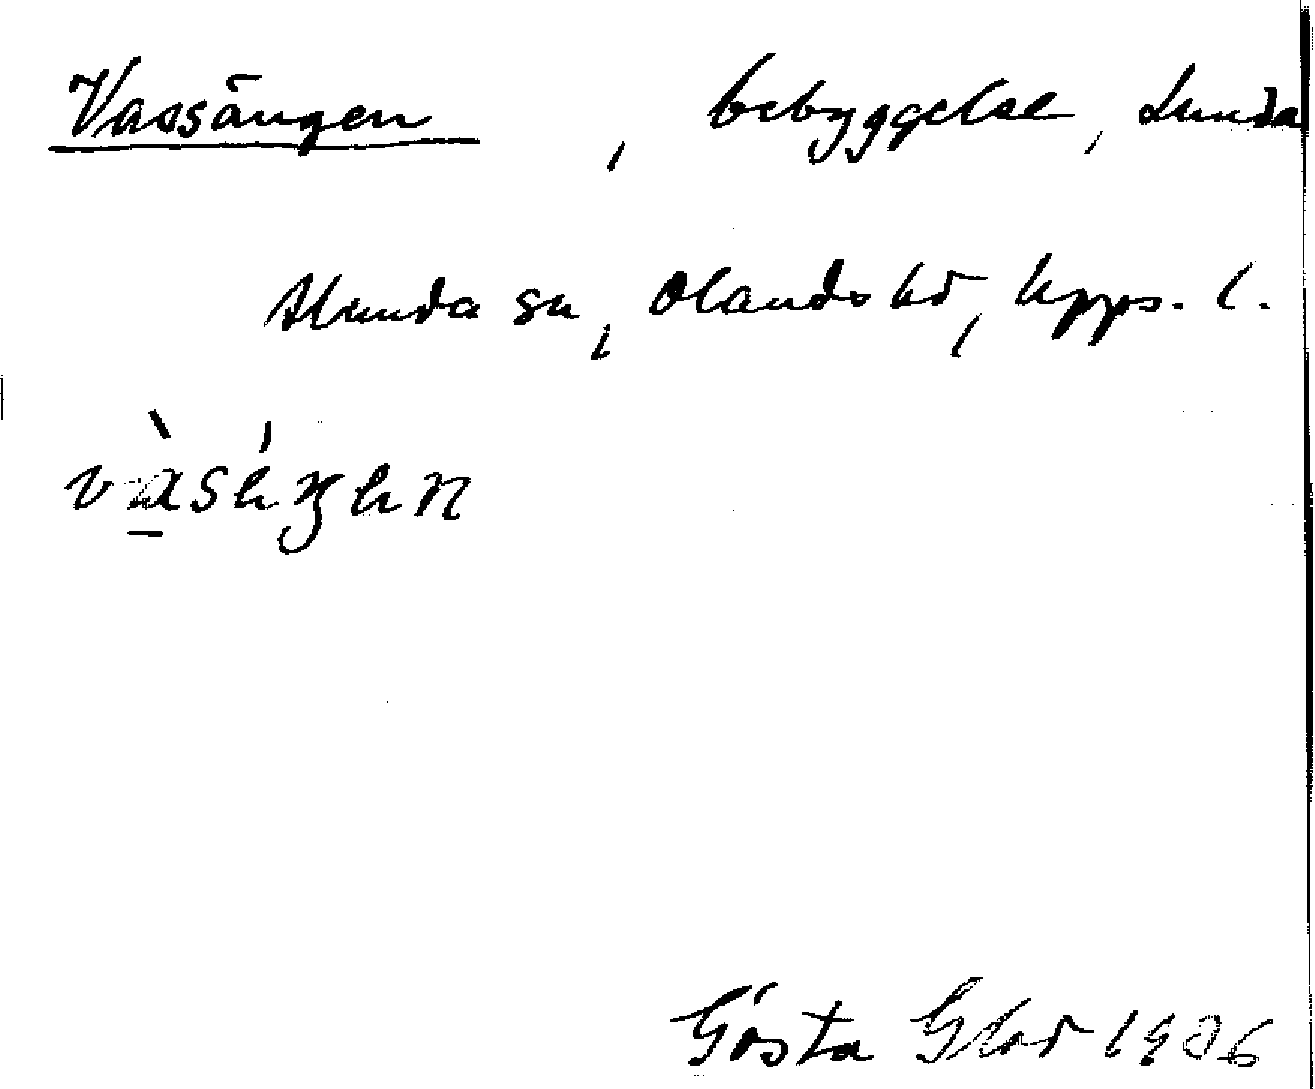 Vassängen, bebyggelse, Lunda
Alunda sn, Olands hd, Upps. l.
Gösta Glad 1936